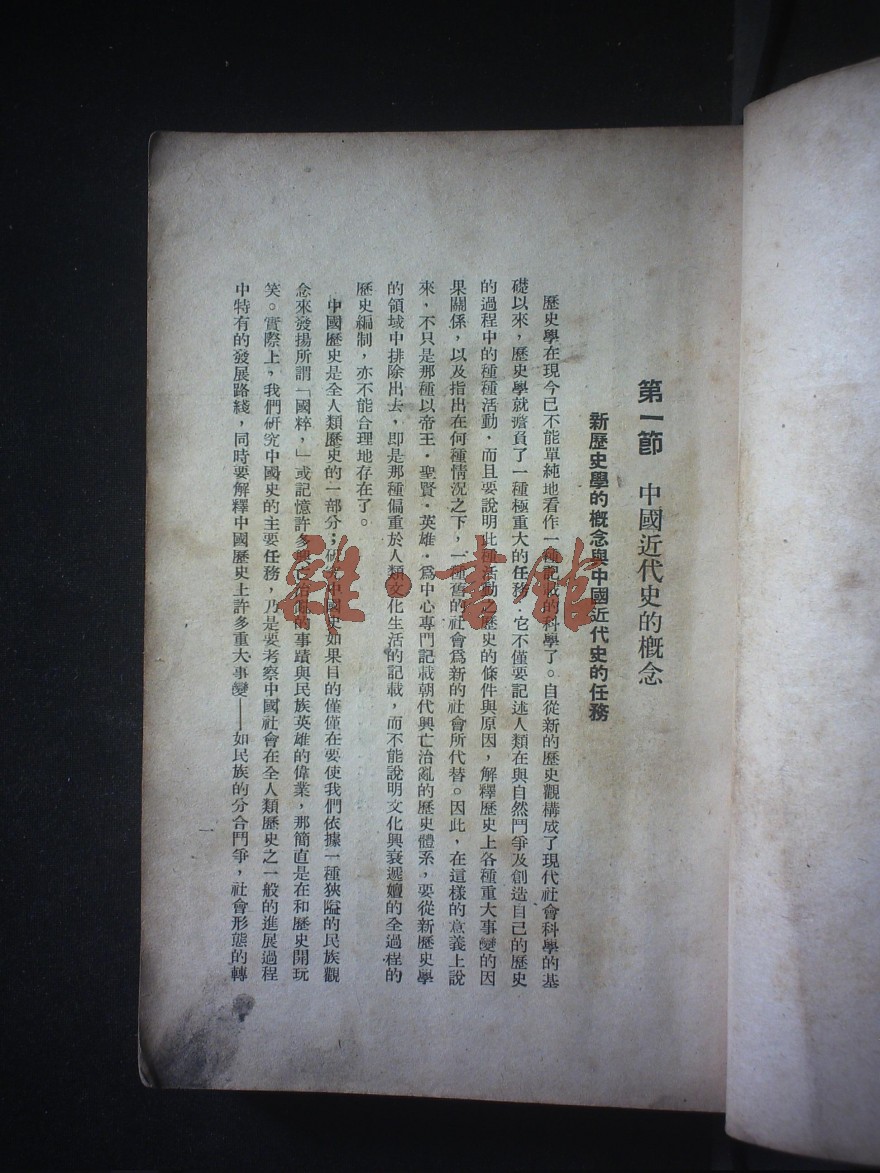 第一節　中國近代史的概念
新歷史學的概念與中國近代史的任務
歷史學在現今已不能單純地看作一種記載的科學了。自從新的歷史觀構成了現代社會科學的基
礎以來，歷史學就擔負了一種極重大的任務．它不僅要記述人類在與自然鬥爭及創造自己的歷史
的過程中的種種活動．而且要說明此種活動之歷史的條件與原因，解釋歷史上各種重大事變的因
果關係，以及指出在何種情況之下，一種舊的社會爲新的社會所代替。因此，在這樣的意義上說
來，不只是那種以帝王．聖賢．英雄．爲中心專門記載朝代興亡治亂的歷史體系，要從新歷史學
的領域中排除出去，即是那種偏重於人類文化生活的記載，而不能說明文化興衰遞嬗的全過程的
歷史編制，亦不能合理地存在了。
中國歷史是全人類歷史的一部分；研究中國史如果目的僅僅在要使我們依據一種狹隘的民族觀
念來發揚所謂「國粹，」或記憶許多興亡治亂的事蹟與民族英雄的偉業，那簡直是在和歷史開玩
笑。實際上，我們研究中國史的主要任務，乃是要考察中國社會在全人類歷史之一般的進展過程
中特有的發展路綫，同時要解釋中國歷史上許多重大事變——如民族的分合鬥爭，社會形態的轉
一
雜·書館